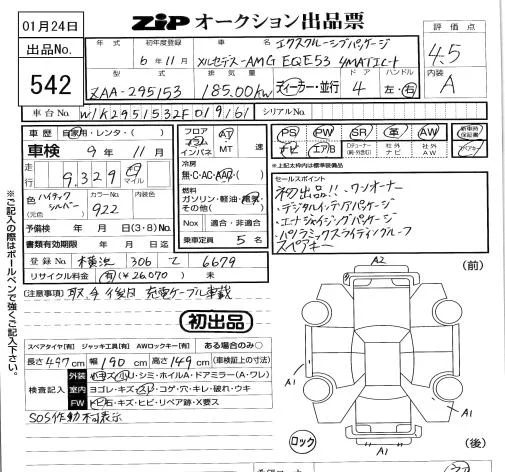 01月24日
ZIP オークション出品票
出品No.
542
年式
初年度登録
6年11月
車名
エクスクルーシブパッケージ
メルセデス-AMG EQE53 4MATIC+
評価点
4.5
型式
ZAA-295153
排気量
185.00kw
ディーラー・並行
ドア
4
ハンドル
左・右
内装
A
車台No.
W1K2951532F019161
シリアルNo.
車歴
自家用・レンタ・( )
車検
9年11月
走行
9,329
マイル
色
ハイテックシルバー
(元色)
カラーNo.
922
内装色
予備検
年 月 日(3・8)No.
書類有効期限
年 月 日迄
登録No.
横浜 306 て 6679
リサイクル料金
(有)(¥26,070) 未
フロア
コラム
インパネ
AT
MT
速
冷房
無・C・AC・AAC・( )
燃料
ガソリン・軽油・電気・
その他( )
Nox
適合・非適合
乗車定員
5名
PS
PW
SR
革
AW
新車時保証書
ナビ
エアB
社外ナビ
社外AW
スペアキー
*上記太わく内は標準装備品
セールスポイント
初出品!!・ワンオーナー
・デジタルインテリアパッケージ
・エナジャイジングパッケージ
・パノラミックスライディングルーフ
スペアキー
(注意事項)
取、今後日 充電ケーブル車載
初出品
スペアタイヤ[有] ジャッキ工具[有] AWロックキー[有] ある場合のみ○
長さ497cm 幅190cm 高さ149cm(車検証上の寸法)
検査記入
外装
室内 ヨゴレ・キズ・スレ・コゲ・穴・キレ・破れ・ウキ
FW トビ石・キズ・ヒビ・リペア跡・X要ス
SOS作動不可表示
※ご記入の際はボールペンで強くご記入下さい。
A2
(前)
A1
A1
A1
ロック
(後)